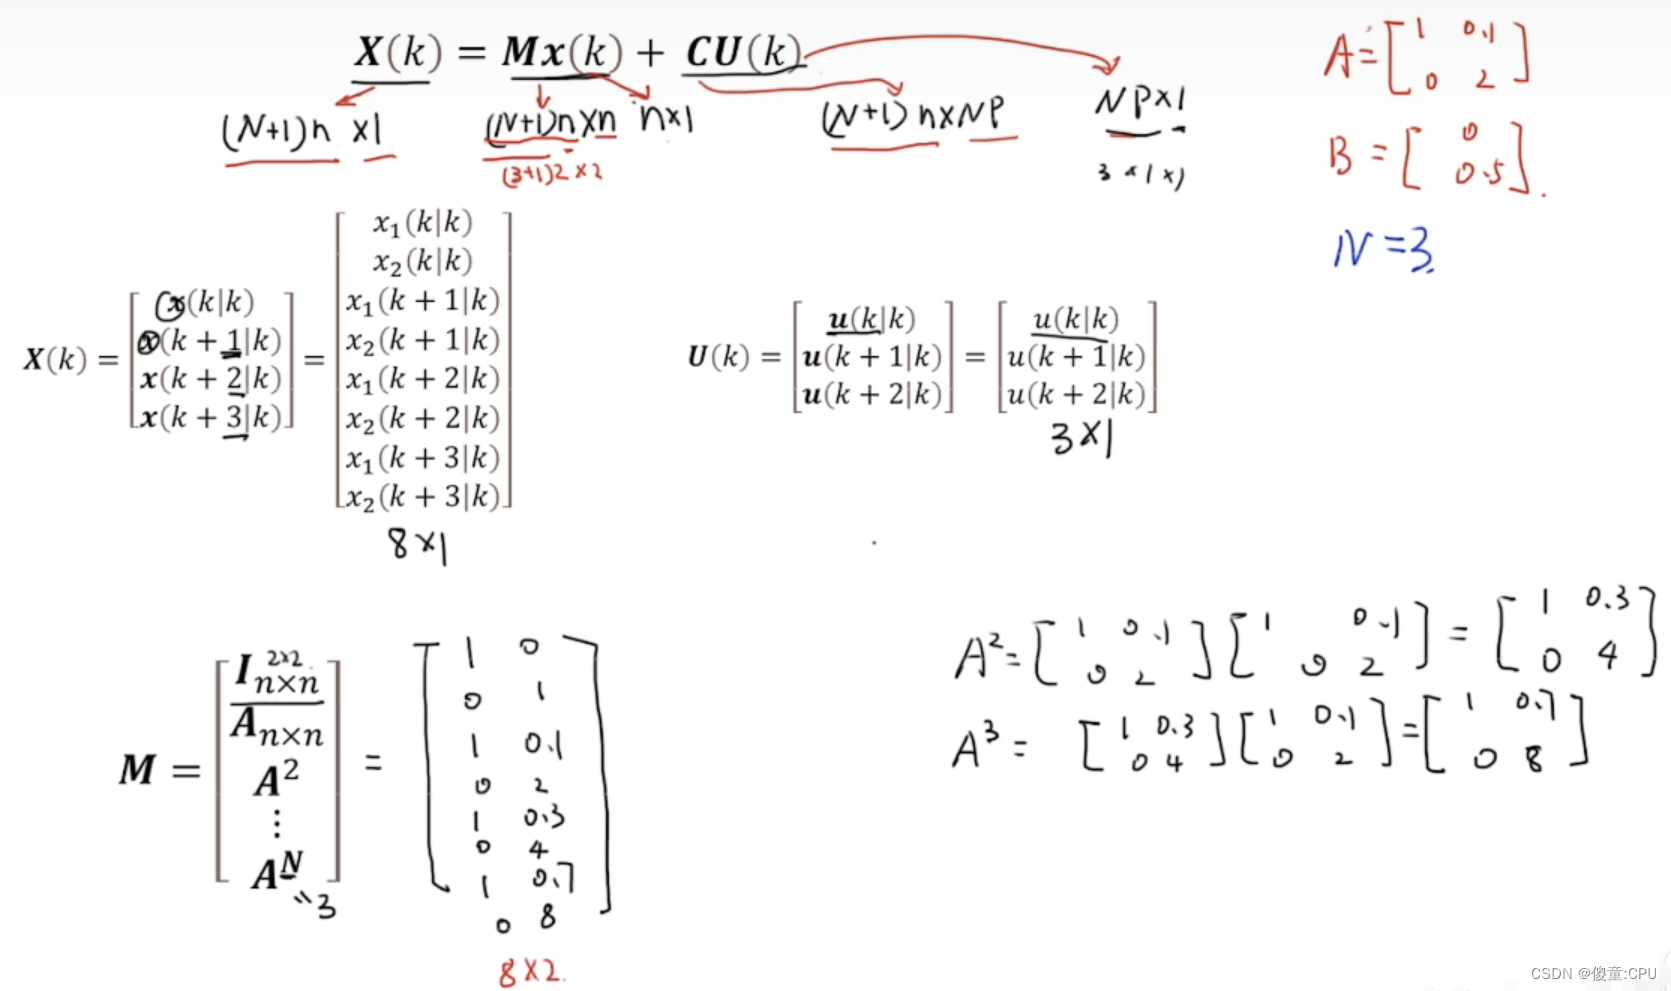 X(k) = Mx(k) + CU(k)
(N+1)n x1
(N+1)nxn
nx1
(N+1) nxNP
NPx1
(3+1)2x2
3x1x1
A=[1 0.1
0 2]
B=[0
0.5].
N=3.
X(k) = [x(k|k)
x(k + 1|k)
x(k + 2|k)
x(k + 3|k)]
= [x₁(k|k)
x₂(k|k)
x₁(k + 1|k)
x₂(k + 1|k)
x₁(k + 2|k)
x₂(k + 2|k)
x₁(k + 3|k)
x₂(k + 3|k)]
8x1
U(k) = [u(k|k)
u(k + 1|k)
u(k + 2|k)]
= [u(k|k)
u(k + 1|k)
u(k + 2|k)]
3x1
M = [I n×n 2x2.
A n×n
A²
⋮
Aᴺ]
"3
= [1 0
0 1
1 0.1
0 2
1 0.3
0 4
1 0.7
0 8]
8x2.
A²=[1 0.1
0 2][1 0.1
0 2]=[1 0.3
0 4]
A³=[1 0.3
0 4][1 0.1
0 2]=[1 0.7
0 8]
CSDN @傻童:CPU